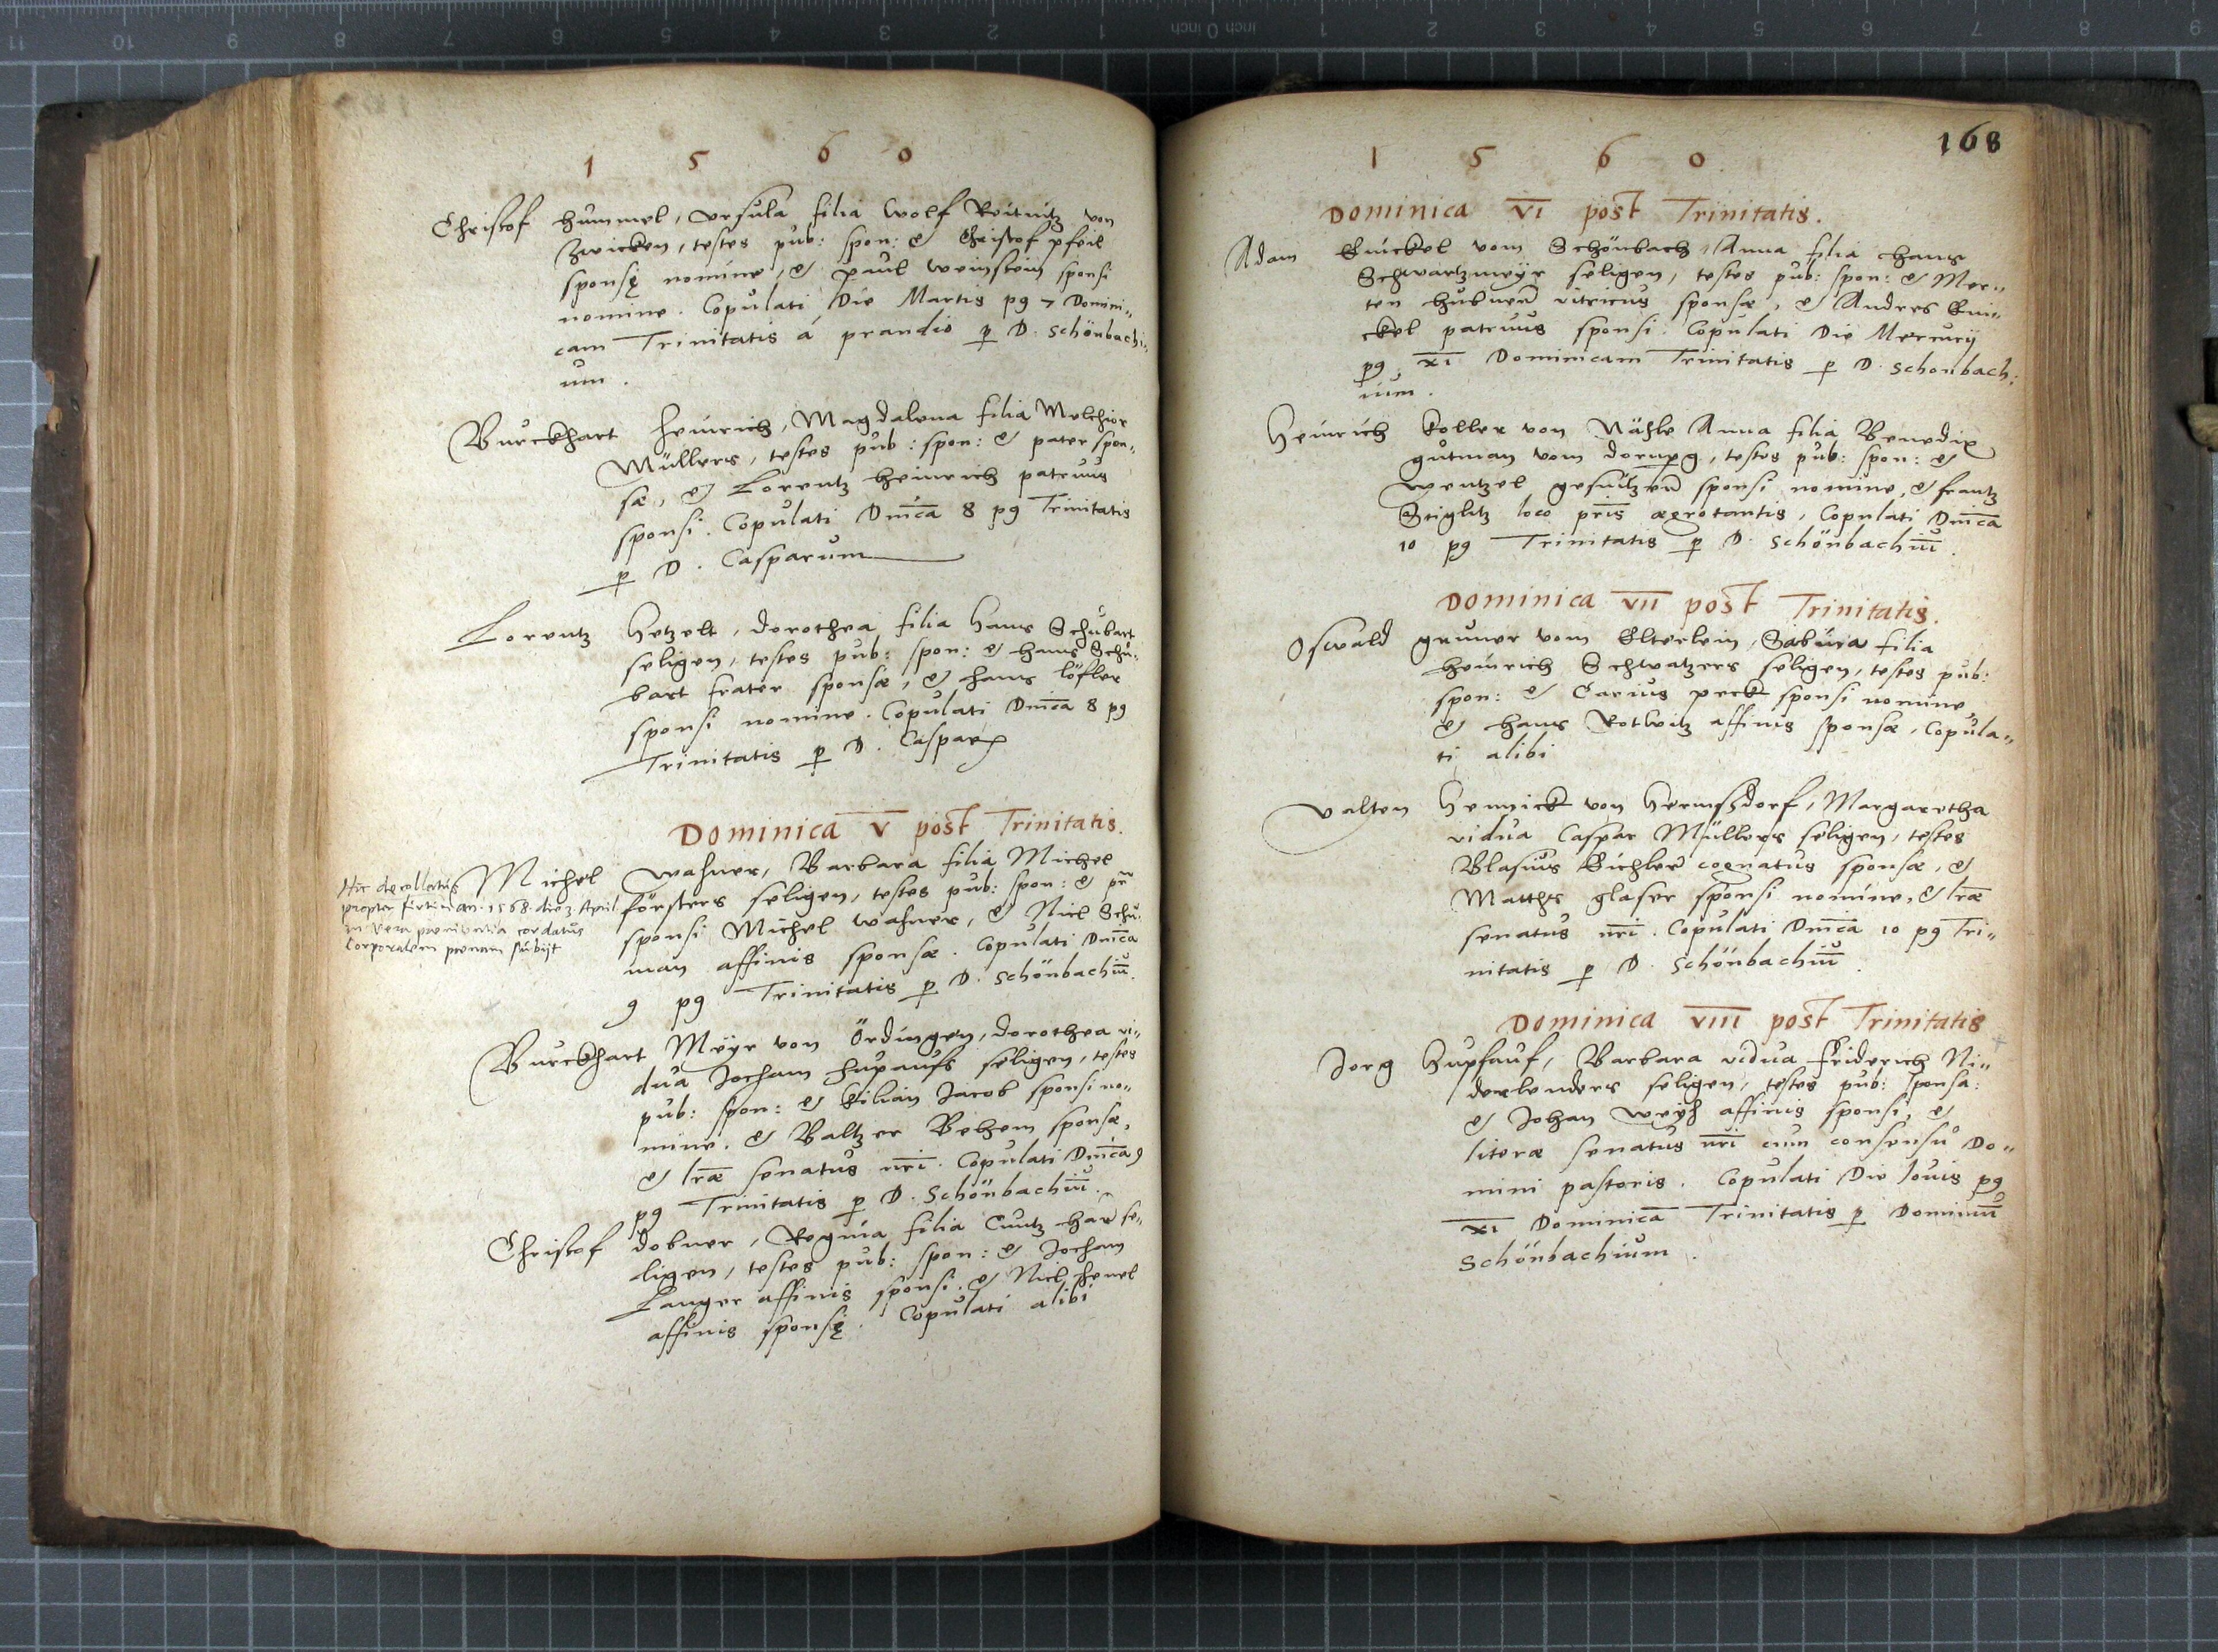 1 5 6 0
Christof Hummel, Ursula filia Wolf Reitnitz von
Zwicken, testes pub: spon: & Christof Pfeil
sponsę nomine, & Paul Weinstein sponsi
nomine. Copulati Die Martis pg 7 Domini„
cam Trinitatis á prandio p D. Schönbachi„
um.
Burckhart Heinrich, Magdalena filia Melchior
Müllers, testes pub: spon: & pater spon„
sæ, & Lorentz Heinrich patruus
sponsi. Copulati Dnica 8 pg Trinitatis
p D. Casparum
Lorentz Hetzelt, Dorothea filia Hans Schubart
seligen, testes pub: spon: & Hans Schu„
bart frater sponsæ, & Hans Löfler
sponsi nomine. Copulati Dnica 8 pg
Trinitatis p D. Caspar
Dominica V post Trinitatis.
Michel Wahner, Barbara filia Michel
Försters seligen, testes pub: spon: & pr
sponsi Michel Wahner, & Nicl Schu„
man affinis sponsæ. Copulati Dnica
9 pg Trinitatis p D. Schönbachiu.
Hic decollatus
propter furtum an. 1568. die 3 April
in vera paenitentia cordatus
Corporalem poenam subijt
Burckhart Meyr von Ördingen, Dorothea vi„
dua Jocham Hupaufs seligen, testes
pub: spon: & Kilian Jacob sponsi no„
mine. & Baltzer Behem sponsæ,
& lræ senatus nri. Copulati Dnica 9
pg Trinitatis p D. Schönbachiu.
Christof Dobner, Regina filia Cuntz Har se„
ligen, testes pub: spon: & Jocham
Langer affinis sponsi. & Nicl Henel
affinis sponsę. Copulati alibi
168
1 5 6 0
Dominica VI post Trinitatis.
Adam Kunckel vom Schönbach, Anna filia Hans
Schwartzmeyr seligen, testes pub: spon: & Mer„
ten Hubner vitricus sponsæ, & Andres Kun„
ckel patruus sponsi. Copulati Die Mercurij
pg XI Dominicam Trinitatis p D. Schonbach:
ium.
Heinrich Koller von Anna filia Benedix
Gutman vom testes pub: spon: &
Wentzel sponsi nomine, & Frantz
Stiglitz loco pris aegrotantis, Copulati Dnica
10 pg Trinitatis p D. Schönbachiu.
Dominica VII post Trinitatis.
Oswald Gruner vom Elterlein, Sabina filia
Heinrich Schwatzers seligen, testes pub:
spon: & Carius Peck sponsi nomine,
& Hans Rotlwitz affinis sponsæ, Copula„
ti alibi
Valten Hennick von Hermssdorf, Margaretha
vidua Caspar Müllers seligen, testes
Blasius Büchler cognatus sponsæ, &
Matthes Glaser sponsi nomine, & lræ
senatus nri. Copulati Dnica 10 pg Tri„
nitatis p D. Schönbachiu.
Dominica VIII post Trinitatis
Jorg Hupfauf, Barbara vidua Friderich Ni„
derlenders seligen, testes pub: sponsa:
& Johan Weyß affinis sponsi, &
literæ senatus nri cum consensu Do„
mini pastoris. Copulati Die Jouis pg
XI Dominica Trinitatis p Dominu
Schönbachium.